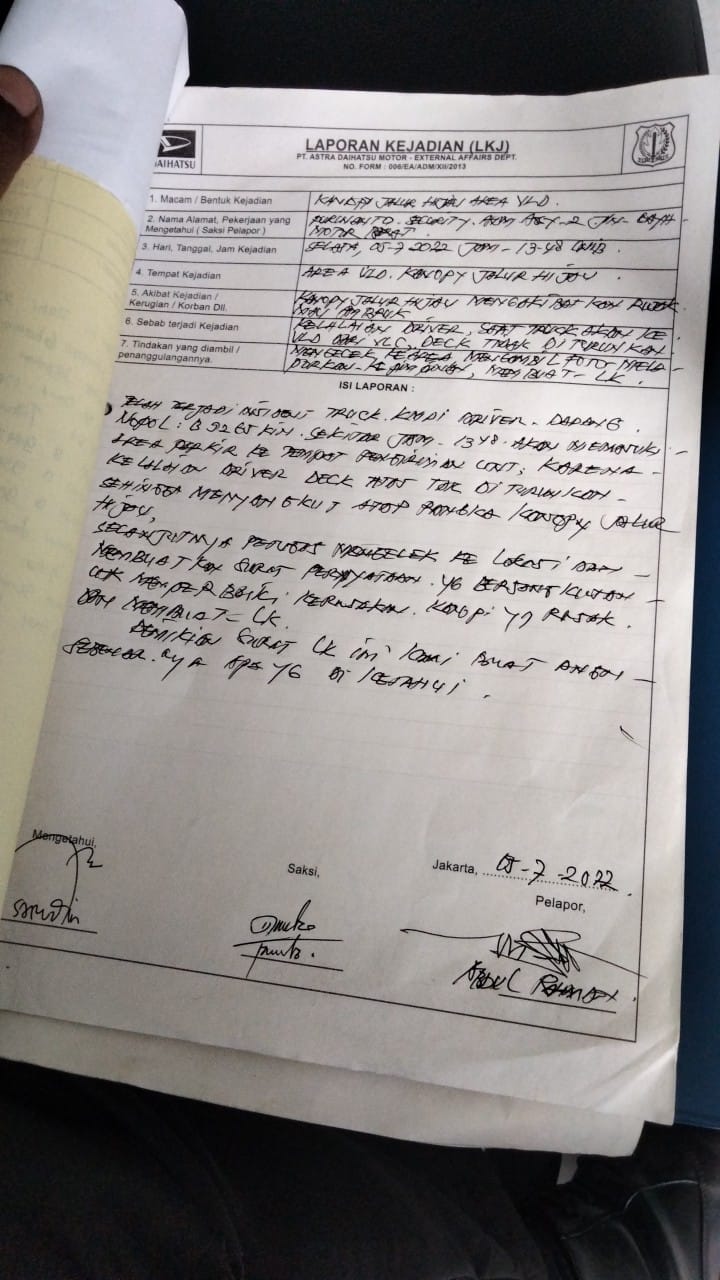 DAIHATSU
LAPORAN KEJADIAN (LKJ)
PT. ASTRA DAIHATSU MOTOR - EXTERNAL AFFAIRS DEPT.
NO. FORM : 006/EA/ADM/XII/2013
1. Macam / Bentuk Kejadian
KANOPY JALUR HIJAU AREA VLD.
2. Nama Alamat, Pekerjaan yang
Mengetahui ( Saksi Pelapor )
PURWANTO. SECURITY.
MOTOR
3. Hari, Tanggal, Jam Kejadian
SELASA, 05-7-2022 JAM - 13-48 WIB.
4. Tempat Kejadian
AREA VLD. KANOPY JALUR HIJAU.
5. Akibat Kejadian /
Kerugian / Korban Dll.
KANOPY JALUR HIJAU MENGAKIBATKAN RUSAK
MAU AMBRUK
6. Sebab terjadi Kejadian
KELALAIAN DRIVER, SAAT TRUCK AKAN KE
VLD DARI VLC, DECK TIDAK DI TURUNKAN.
7. Tindakan yang diambil /
penanggulangannya.
MENGECEK KE AREA MENGAMBIL FOTO MELA-
PORKAN KE PIMPINAN, MEMBUAT LK.
ISI LAPORAN :
TELAH TERJADI INSIDENT TRUCK. DRIVER. DADANG.
NOPOL : B 9265 KIN. SEKITAR JAM - 1348. AKAN MEMASUKI -
AREA PARKIR KE TEMPAT PENGIRIMAN UNIT; KARENA -
KELALAIAN DRIVER DECK ATAS TDK DI TURUNKAN -
SEHINGGA MENYANGKUT ATAP RANGKA KANOPY JALUR
HIJAU,
SELANJUTNYA PETUGAS MENGECEK KE LOKASI DAN -
MEMBUATKAN SURAT PERNYATAAN. YG BERSANGKUTAN -
UTK MEMPERBAIKI KERUSAKAN. KANOPI YG RUSAK.
DAN MEMBUAT - LK.
DEMIKIAN SURAT LK ini kami BUAT DNGN -
SEBENAR.nya APA YG DI KETAHUI.
Mengetahui,
Saksi,
Jakarta, 05-7-2022.
Pelapor,
SARUDIN
ABDUL